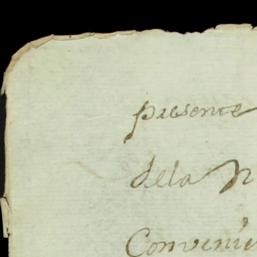 presente
dela N
Convenie